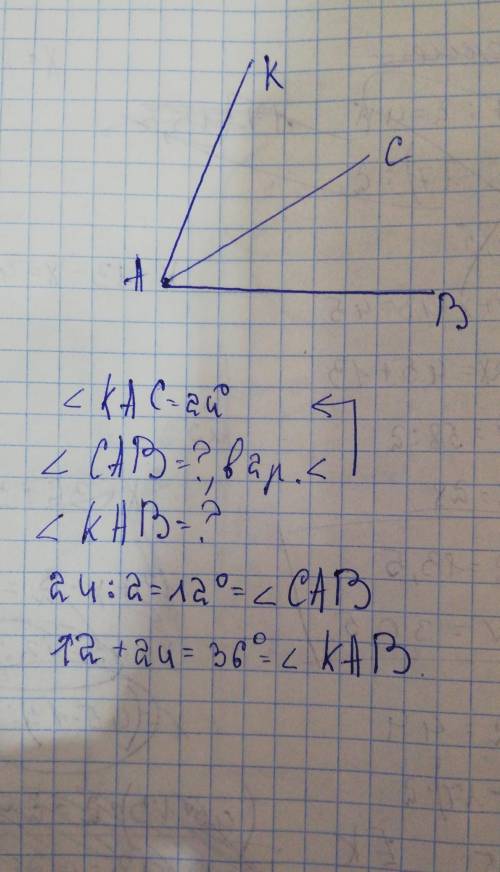 K
C
A
B
∠ KAC = 24°
∠ CAB = ?, в 2 р. <
∠ KAB = ?
24 : 2 = 12° = ∠ CAB
12 + 24 = 36° = ∠ KAB.